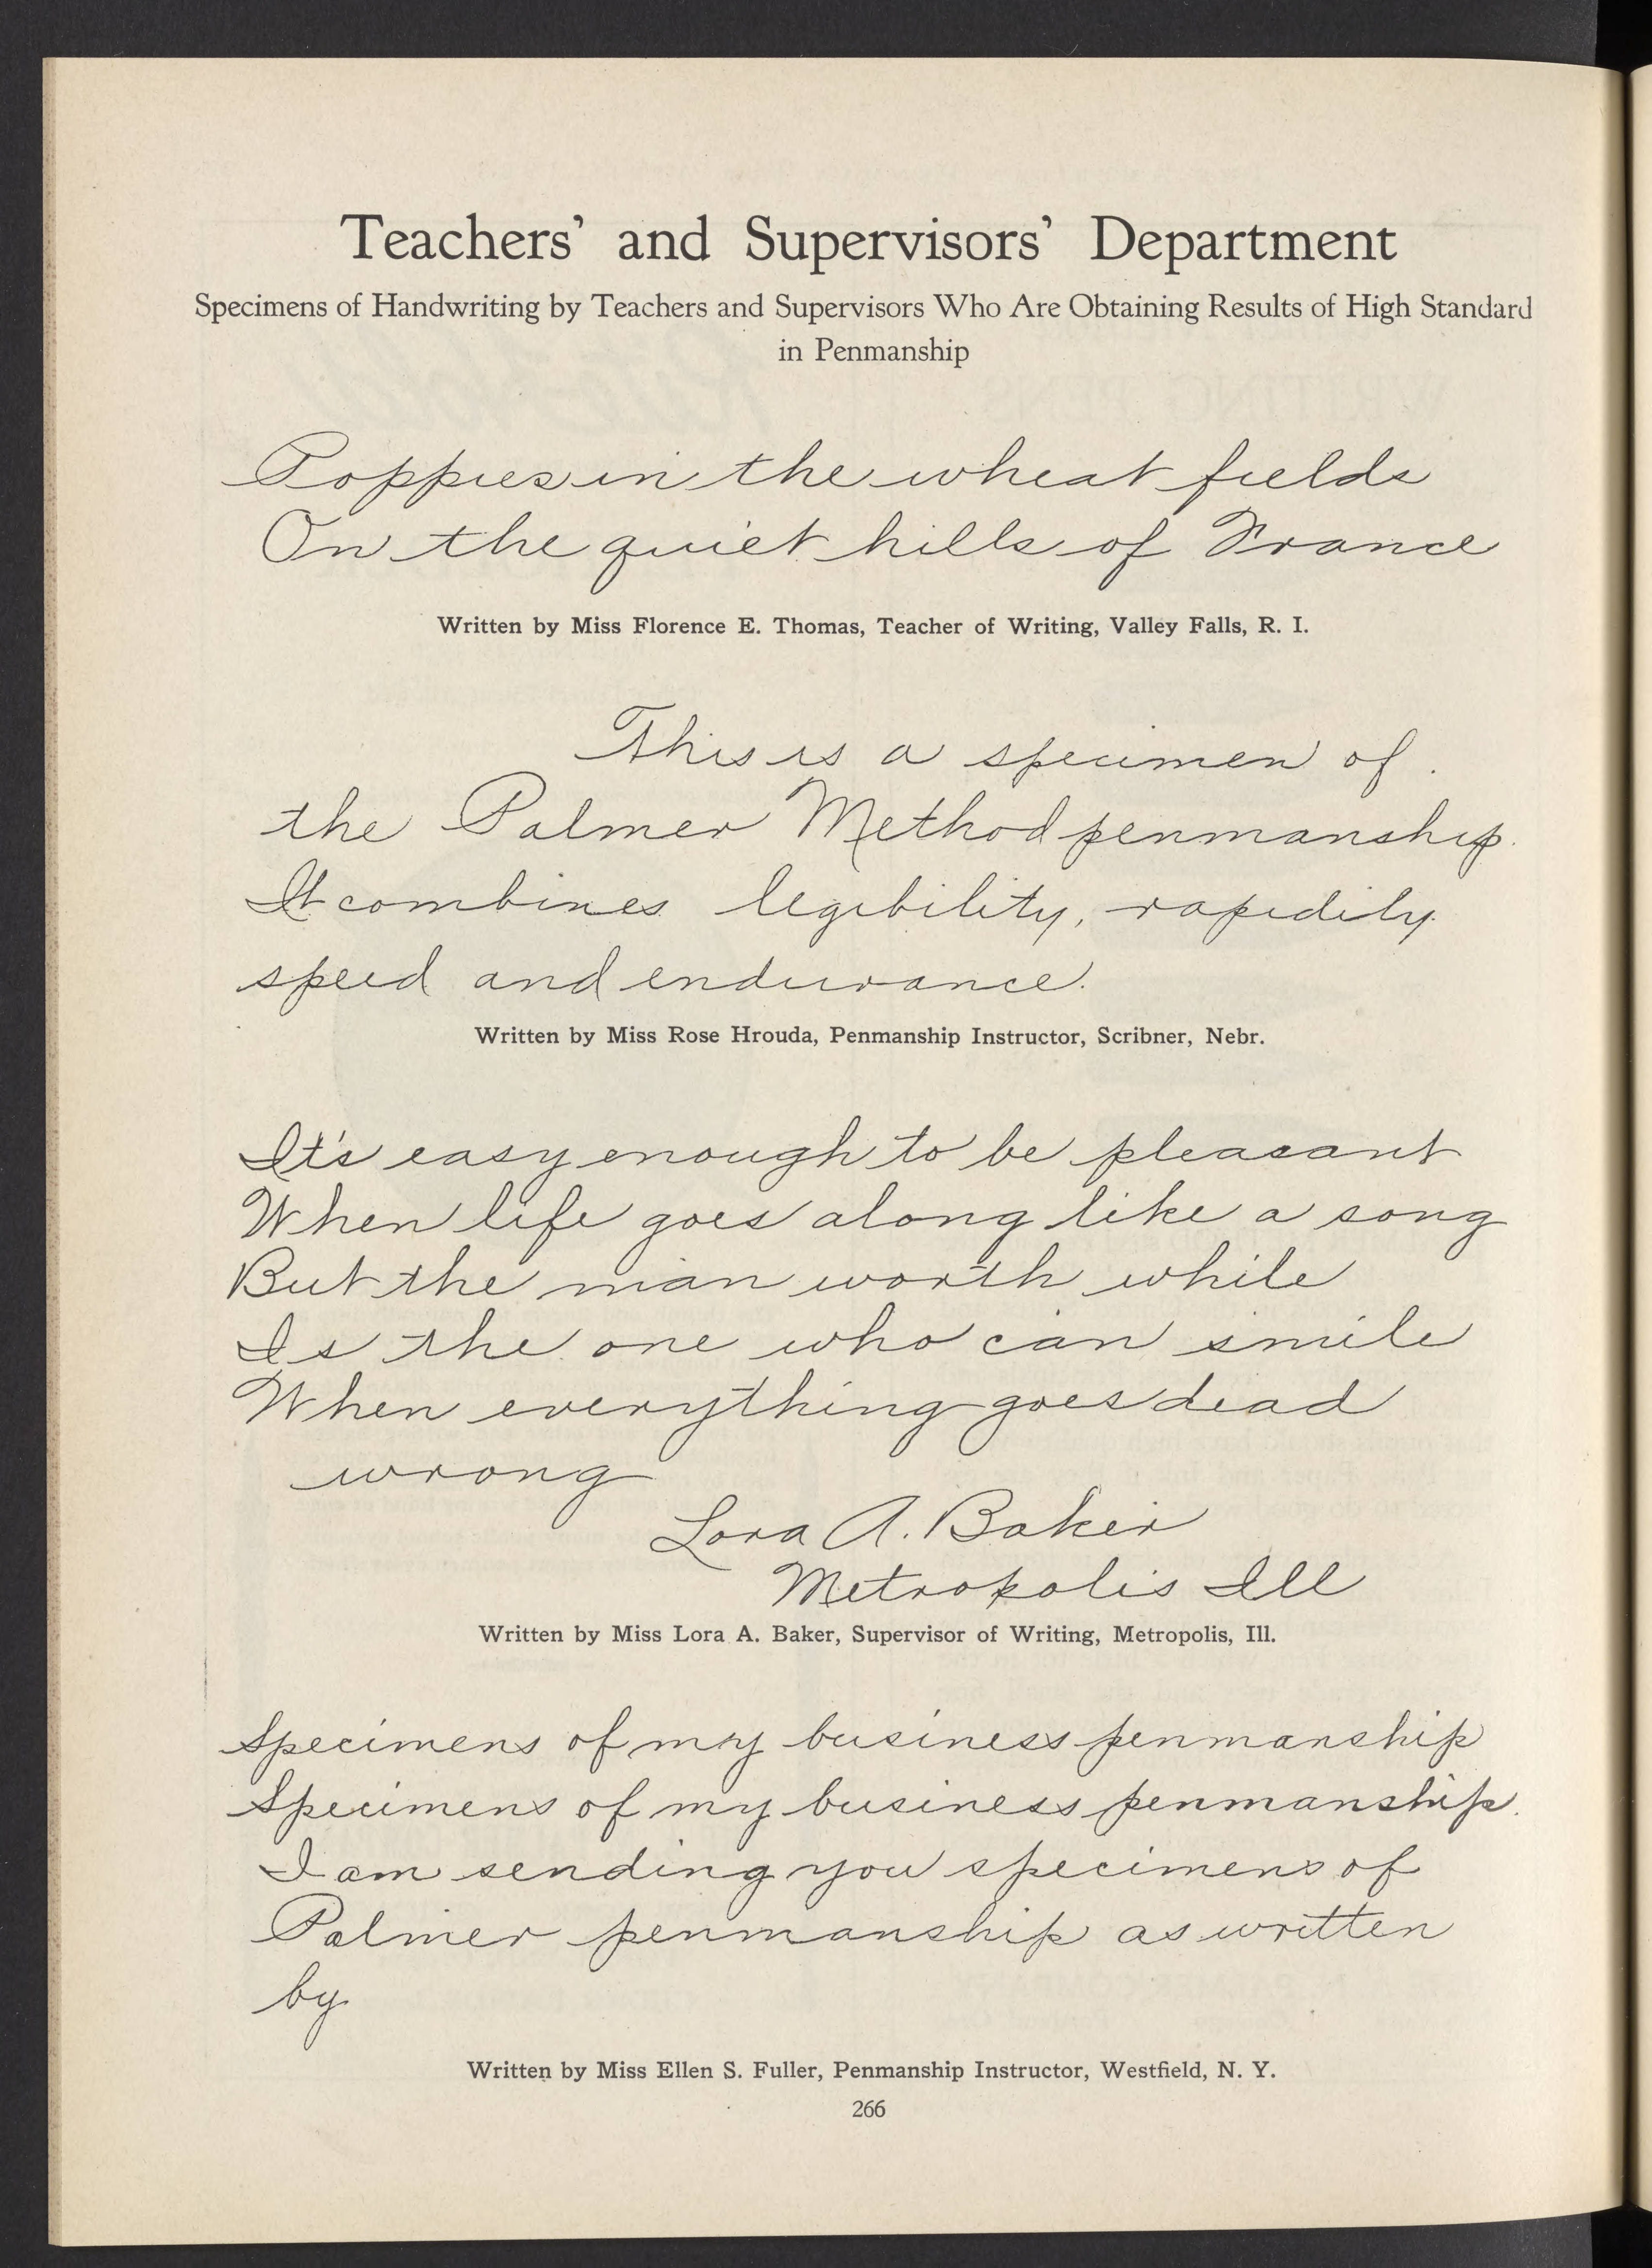 Teachers' and Supervisors' Department
Specimens of Handwriting by Teachers and Supervisors Who Are Obtaining Results of High Standard
in Penmanship
Poppies in the wheat fields
On the quiet hills of France
Written by Miss Florence E. Thomas, Teacher of Writing, Valley Falls, R. I.
This is a specimen of
the Palmer Method penmanship.
It combines legibility, rapidity
speed and endurance.
Written by Miss Rose Hrouda, Penmanship Instructor, Scribner, Nebr.
It's easy enough to be pleasant
When life goes along like a song
But the man worth while
Is the one who can smile
When everything goes dead
wrong
Lora A. Baker
Metropolis Ill
Written by Miss Lora A. Baker, Supervisor of Writing, Metropolis, Ill.
Specimens of my business penmanship
Specimens of my business penmanship.
I am sending you specimens of
Palmer penmanship as written
by
Written by Miss Ellen S. Fuller, Penmanship Instructor, Westfield, N. Y.
266